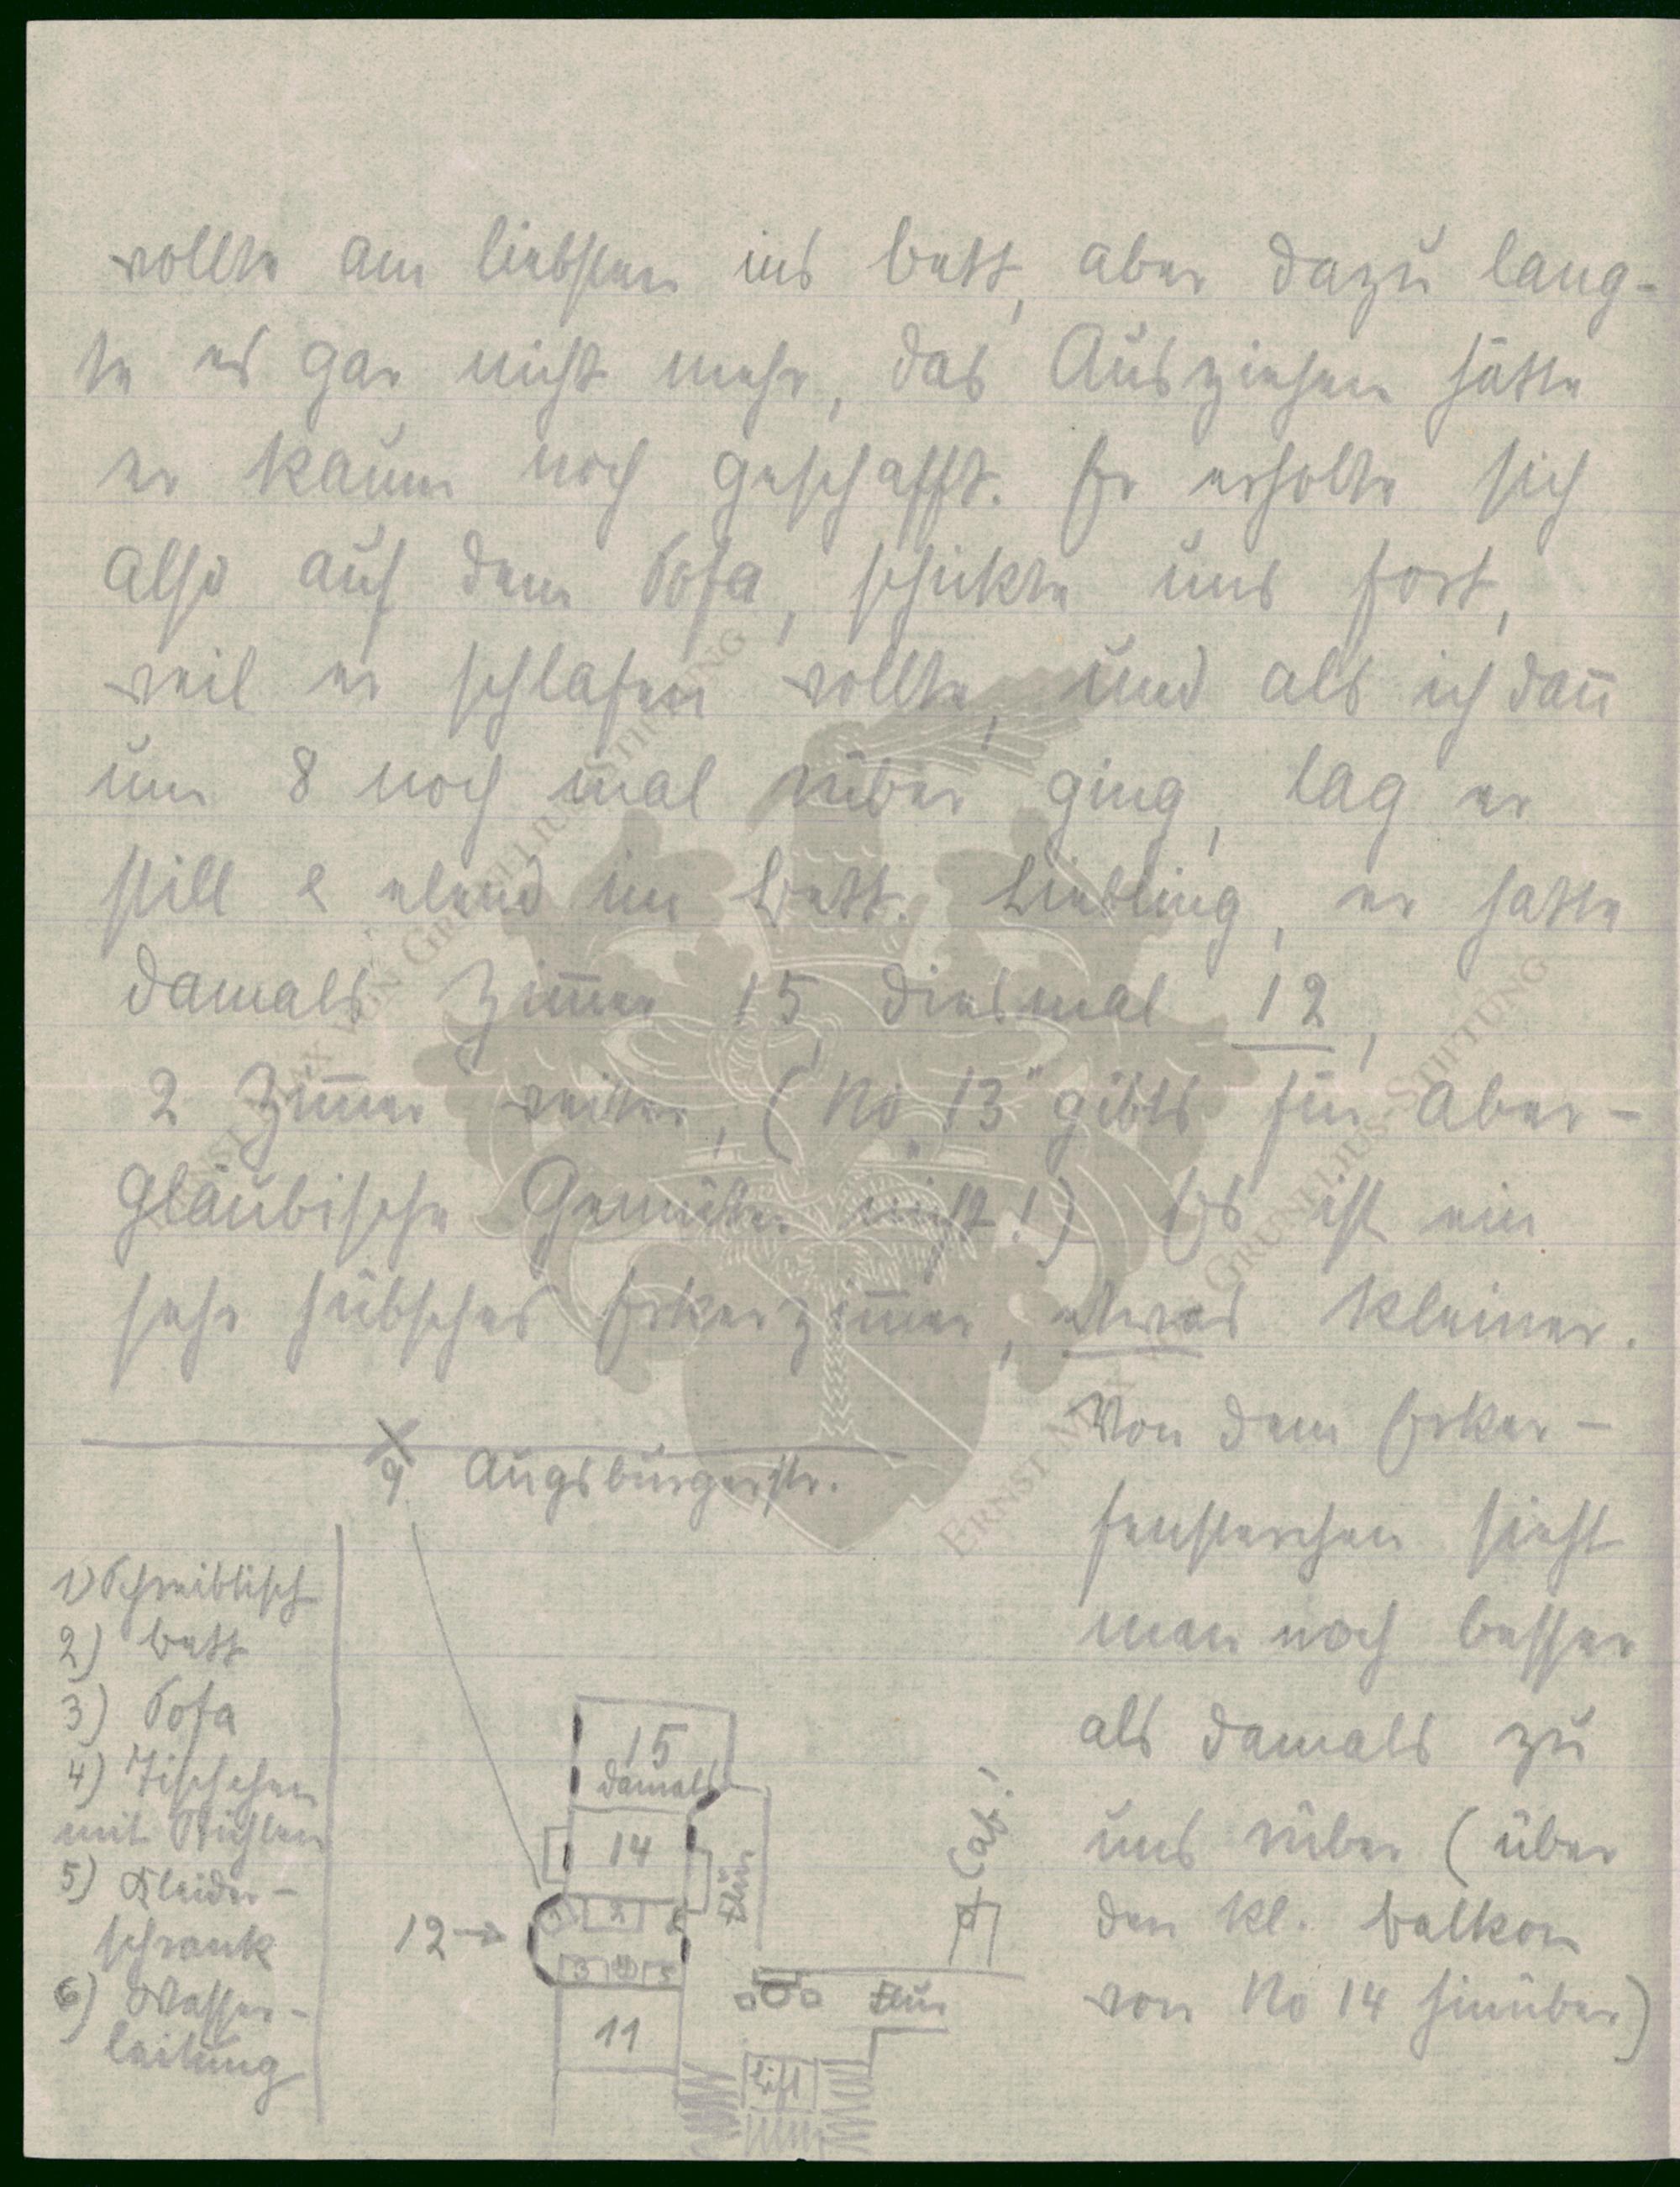 wollte am liebsten ins Bett, aber dazu lang-
te es gar nicht mehr, das Ausziehen hätte
er kaum noch geschafft. Er erholte sich
also auf dem Sofa, schikte uns fort,
weil er schlafen wollte, und als ich dan̄
um 8 noch mal rüber ging, lag er
still & elend im Bett. Liebling, er hatte
damals Zim̄er 15, diesmal 12,
2 Zim̄er weiter, (No „13" gibts für Aber-
gläubische Gemüter nicht!) Es ist ein
sehr hübsches Erkerzim̄er, etwas kleiner.
Von dem Erker-
fensterchen sieht
man noch besser
als damals zu
uns rüber (über
den kl. Balkon
von No 14 hinüber)
9 Augsburgerstr.
1) Schreibtisch
2) Bett
3) Sofa
4) Tischchen
mit Stühlen
5) Kleider-
schrank
6) Wasser-
leitung
15
damals
14
Flur
12 →
1 2 6
3 4 5
11
Flur
Lift
ERNST MAX VON GRUNELIUS-STIFTUNG
ERNST MAX VON GRUNELIUS-STIFTUNG